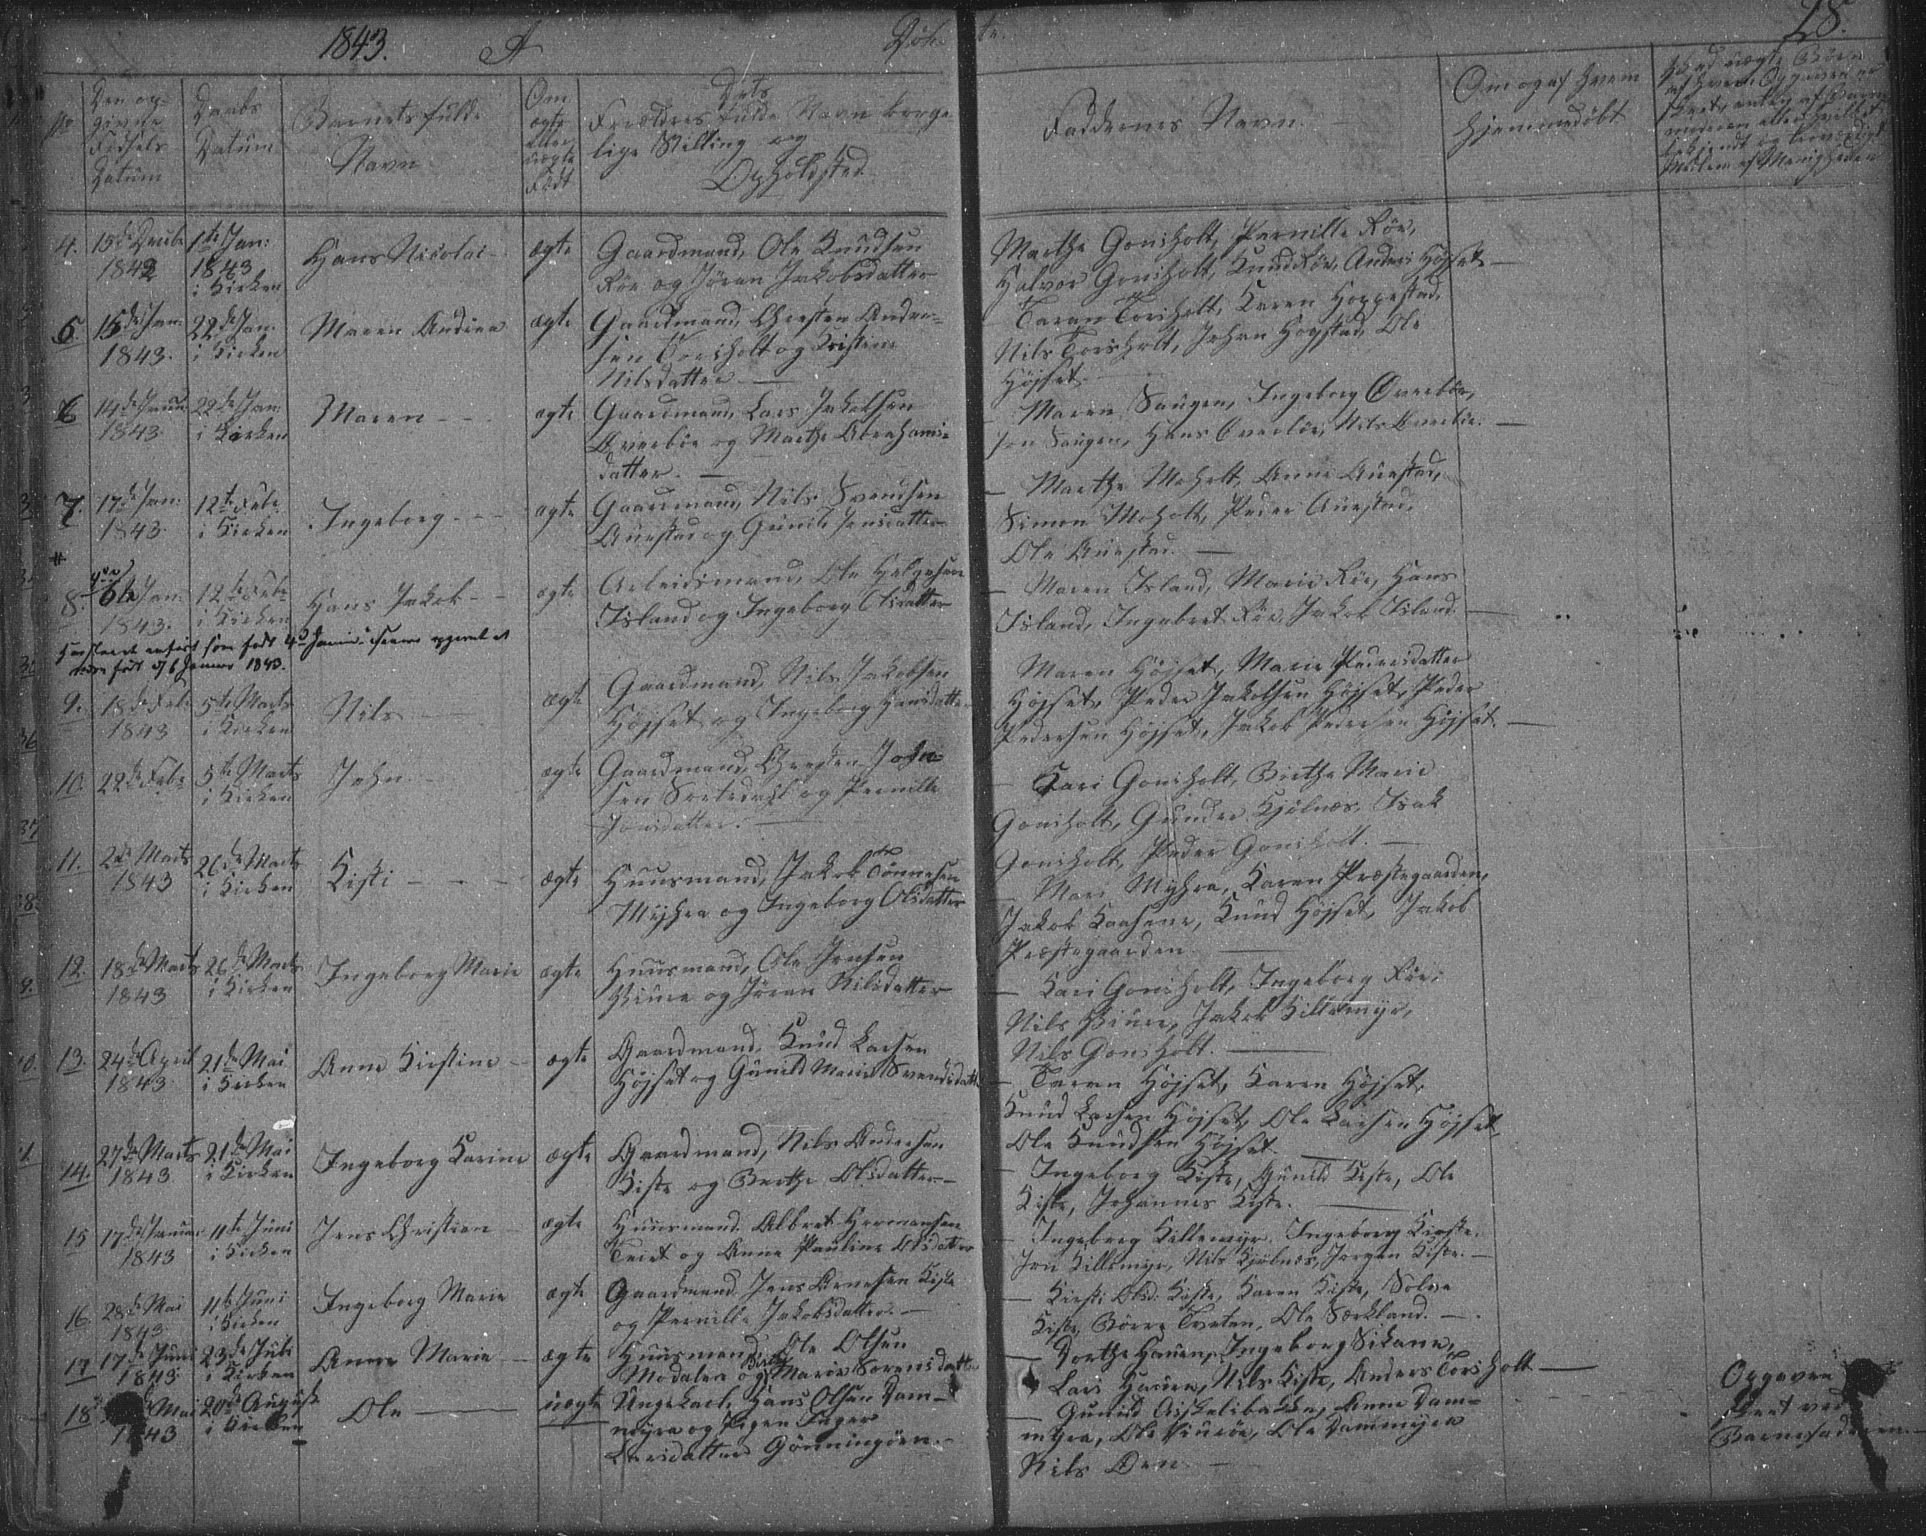 1843. A Døb te. 28.
No Den op- givne Fødsels Datum
Daabs Datum
Barnets fulde Navn
Om ægte eller uægte Født
Forældres fulde Navn borger- lige Stilling og Opholdsted
Faddernes Navn.
Om og af hvem hjemmedøbt
4. 15de Decbr 1842
1te Jan: 1843 i Kirken
Hans Nicolai
ægte
Gaardmand, Ole Knudsen
Röe og Jöran Jakobsdatter
Marthe Gonsholt, Pernille Röe,
Halvor Gonsholt, Knud Röe, Anders Höjset
5. 15de Jan: 1843.
22de Jan: i Kirken
Maren Andrea
ægte
Gaardmand, Christen Ander-
sen Torsholt og Kirsten
Nilsdatter
Taran Torsholt, Karen Hogstad,
Nils Torsholt, Johan Hogstad, Ole
Höjset.
6 14de Januar 1843
22de Jan: i Kirken
Maren
ægte
Gaardmand, Lars Jakobsen
Överböe og Marthe Abrahams-
datter.
Maren Haugen, Ingeborg Överböe,
Jon Haugen, Hans Överböe, Nils Överböe.
7. 17de Jan: 1843.
12te Febr i Kirken
Ingeborg
ægte
Gaardmand, Nils Svendsen
Auestad og Gunild Jensdatter
Marthe Moholt, Anne Auestad,
Simon Moholt, Peder Auestad,
Ole Auestad.
8. 6te Jan: 1843.
12te Febr i Kirken
Hans Jakob
ægte
Arbeidsmand, Ole Helgesen
Island og Ingeborg Olsdatter
Maren Island, Marie Röe, Hans
Island, Ingebret Röe, Jakob Island.
født d/6 Januar 1843.
9. 18de Febr 1843
5te Marts i Kirken
Nils
ægte
Gaardmand, Nils Jakobsen
Höjset og Ingeborg Hansdatter
Maren Höjset, Marie Pedersdatter
Höjset, Peder Jakobsen Höjset, Peder
Pedersen Höjset, Jakob Pedersen Höjset.
10. 22de Febr
5te Marts i Kirken
John
ægte
Gaardmand, Christen John-
sen Sortedahl og Pernille
Jonsdatter.
Kari Gonsholt, Birthe Marie
Gonsholt, Gunder Kjölnæs, Isak
Gonsholt, Peder Gonsholt.
11. 2de Marts 1843
26de Marts i Kirken
Kisti
ægte
Huusmand, Jakob Tönnesen
Myhra og Ingeborg Olsdatter
Mari Myhra, Karen Præstegaarden,
Jakob Kaasene, Knud Höjset, Jakob
Præstegaarden
12. 18de Marts 1843
26de Marts i Kirken
Ingeborg Marie
ægte
Huusmand, Ole Jensen
og Jöran Nilsdatter
Kari Gonsholt, Ingeborg Röe,
Nils Jakob Killemyr,
Nils Gonsholt.
13. 24de April 1843
21de Mai i Kirken
Anne Kirstine
ægte
Gaardmand, Knud Larsen
Höjset og Gunild Marie Svendsdatter
Taran Höjset, Karen Höjset,
Knud Larsen Höjset, Ole Larsen Höjset,
Ole Knudsen Höjset.
14. 27de Marts 1843
21de Mai i Kirken
Ingeborg Karine
ægte
Gaardmand, Nils Andersen
Kiste og Berthe Olsdatter
Ingeborg Kiste, Gunild Kiste, Ole
Kiste, Johannes Kiste.
15 17de Januar 1843
11te Juni i Kirken
Jens Christian
ægte
Huusmand. Albret Hermansen
Tveit og Anne Pauline Olsdatter
Ingeborg Killemyr. Ingeborg Kiste.
Jon Killemyr, Nils Kjölnæs, Jørgen Kiste.
16. 28de Mai 1843
11te Juni i Kirken
Ingeborg Marie
ægte
Gaardmand. Jens Arnesen Kiste
og Pernille Jakobsdatter.
Kirsti Olsd: Kiste, Karen Kiste, Solve
Kiste, Börre Tveten, Ole Særkland.
17 17de Juni 1843
23de Juli i Kirken
Anne Marie
ægte
Huusmand, Ole Olsen
Modalen og Marie Sorensdatter
Dorthe Hauen, Ingeborg
Lars Hauen, Nils Kiste, Anders Torsholt
18 Mai 1843
20de August i Kirken
Ole
uægte
Ungekarl, Hans Olsen Dam-
myra og Pigen Inger
Larsdatter Gönningöen.
Gunild Anne Dam-
myra, Ole Ole Dammyra
Nils Öen
Opgaven
skeet ved
Barnefaderen